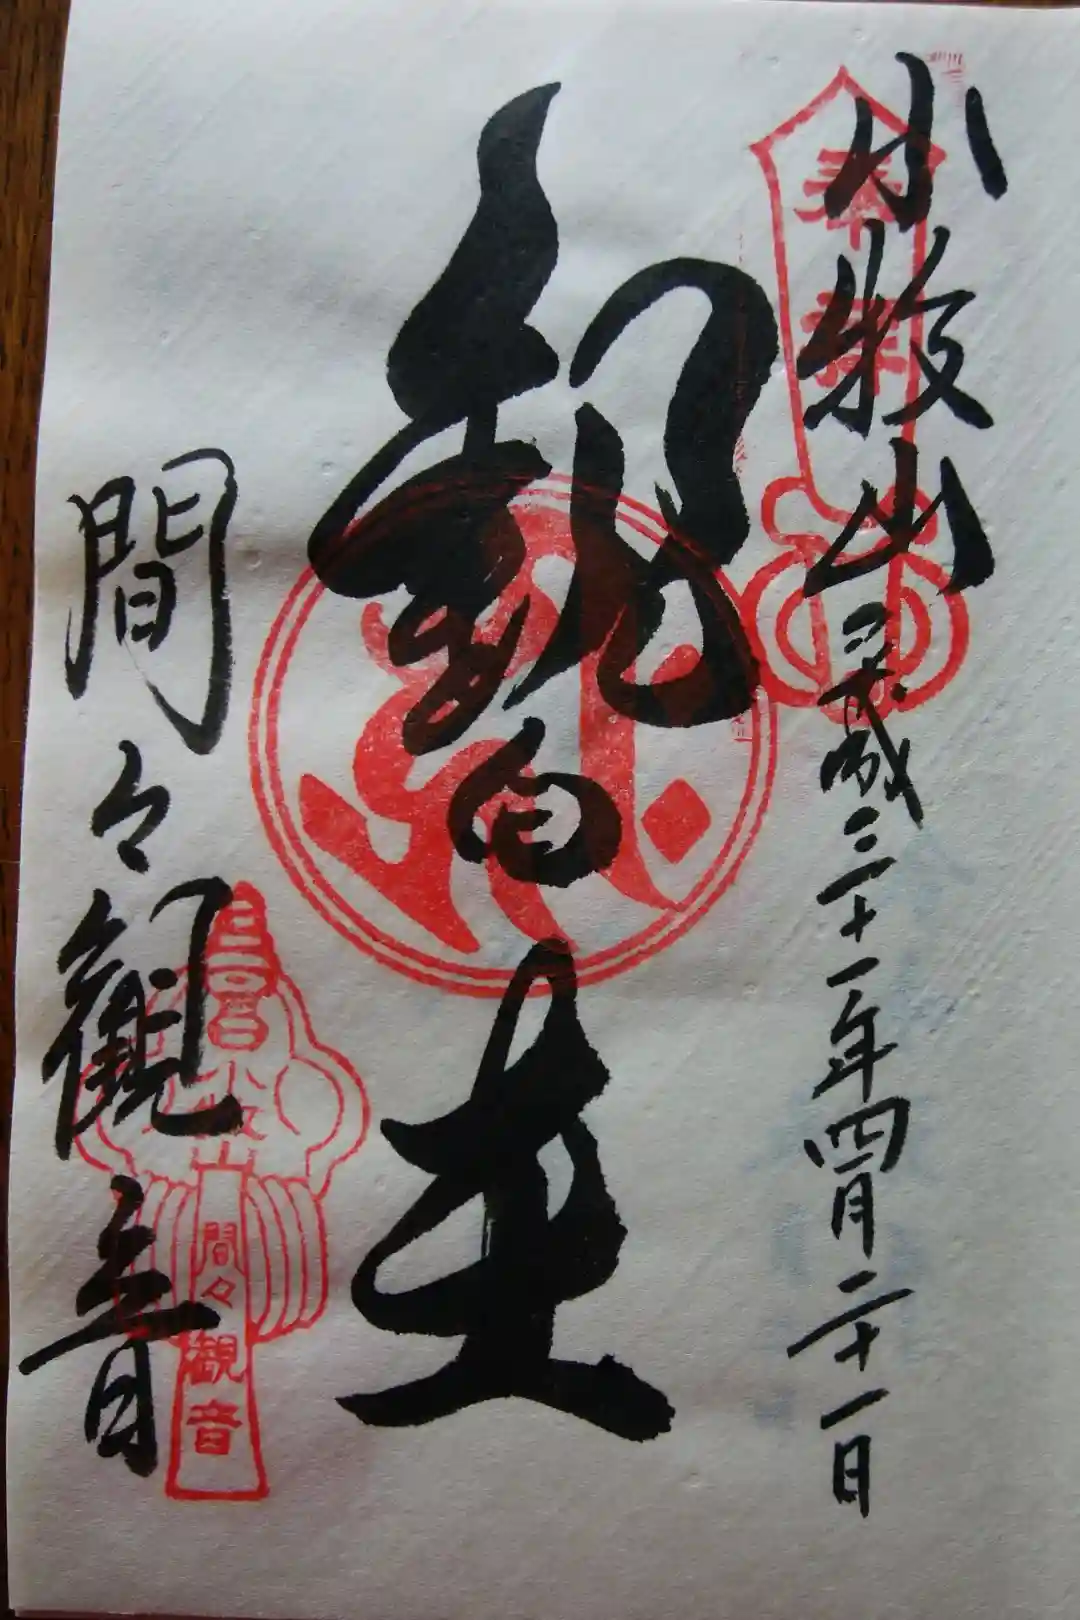 奉拝
小牧山 平成三十一年四月二十一日
観自在
間々觀音
小牧山
間々観音